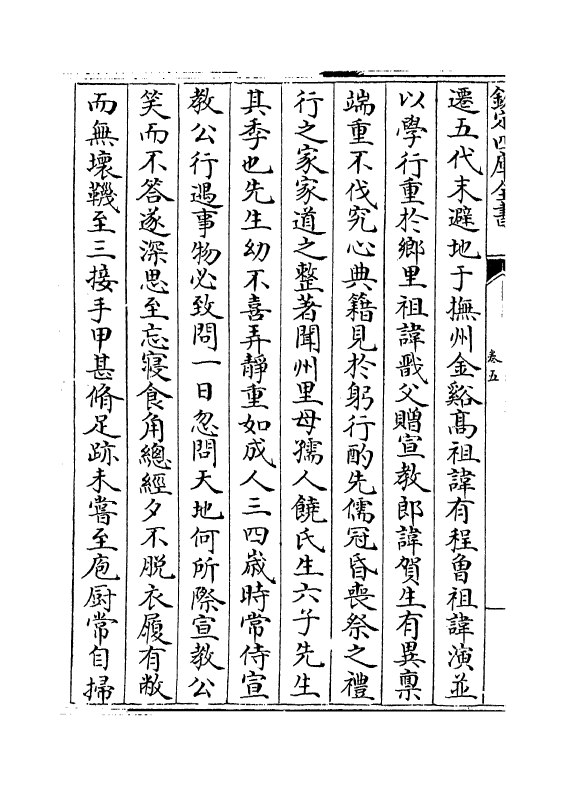 欽定四庫全書
卷五
遷五代末避地于撫州金谿髙祖諱有程曾祖諱演並
以學行重於鄉里祖諱戩父贈宣教郎諱賀生有異稟
端重不伐究心典籍見於躬行酌先儒冠昏喪祭之禮
行之家家道之整著聞州里母孺人饒氏生六子先生
其季也先生幼不喜弄靜重如成人三四嵗時常侍宣
教公行遇事物必致問一日忽問天地何所際宣教公
笑而不答遂深思至忘寢食角總經夕不脱衣履有敝
而無壞韈至三接手甲甚脩足跡未嘗至庖厨常自掃